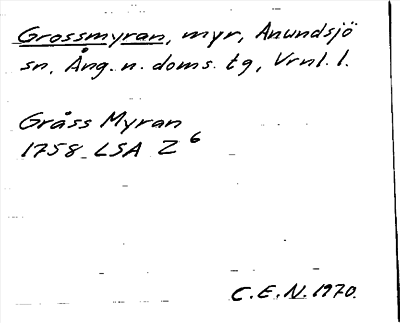 Grossmyran, myr, Anundsjö
sn, Ång. n. doms. tg, Vrnl. l.
Gråss Myran
1758 LSA Z 6
C.E.N. 1970.